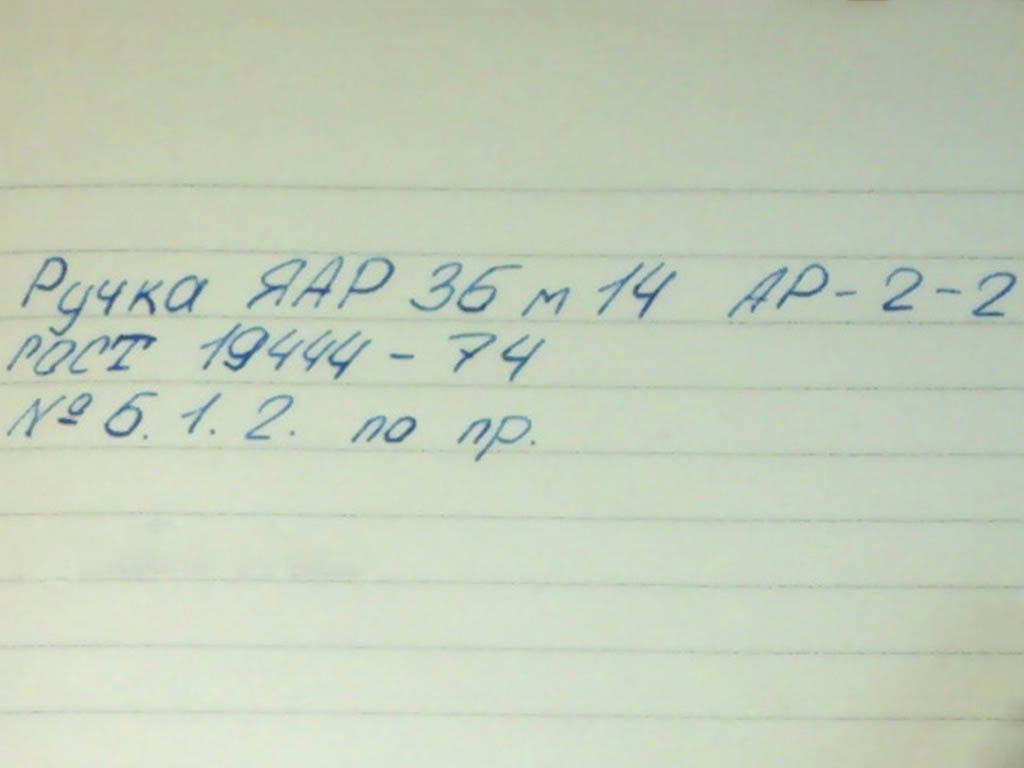 Ручка ЯАР 36 м 14 АР-2-2
ГОСТ 19444-74
№ 6.1.2. по пр.